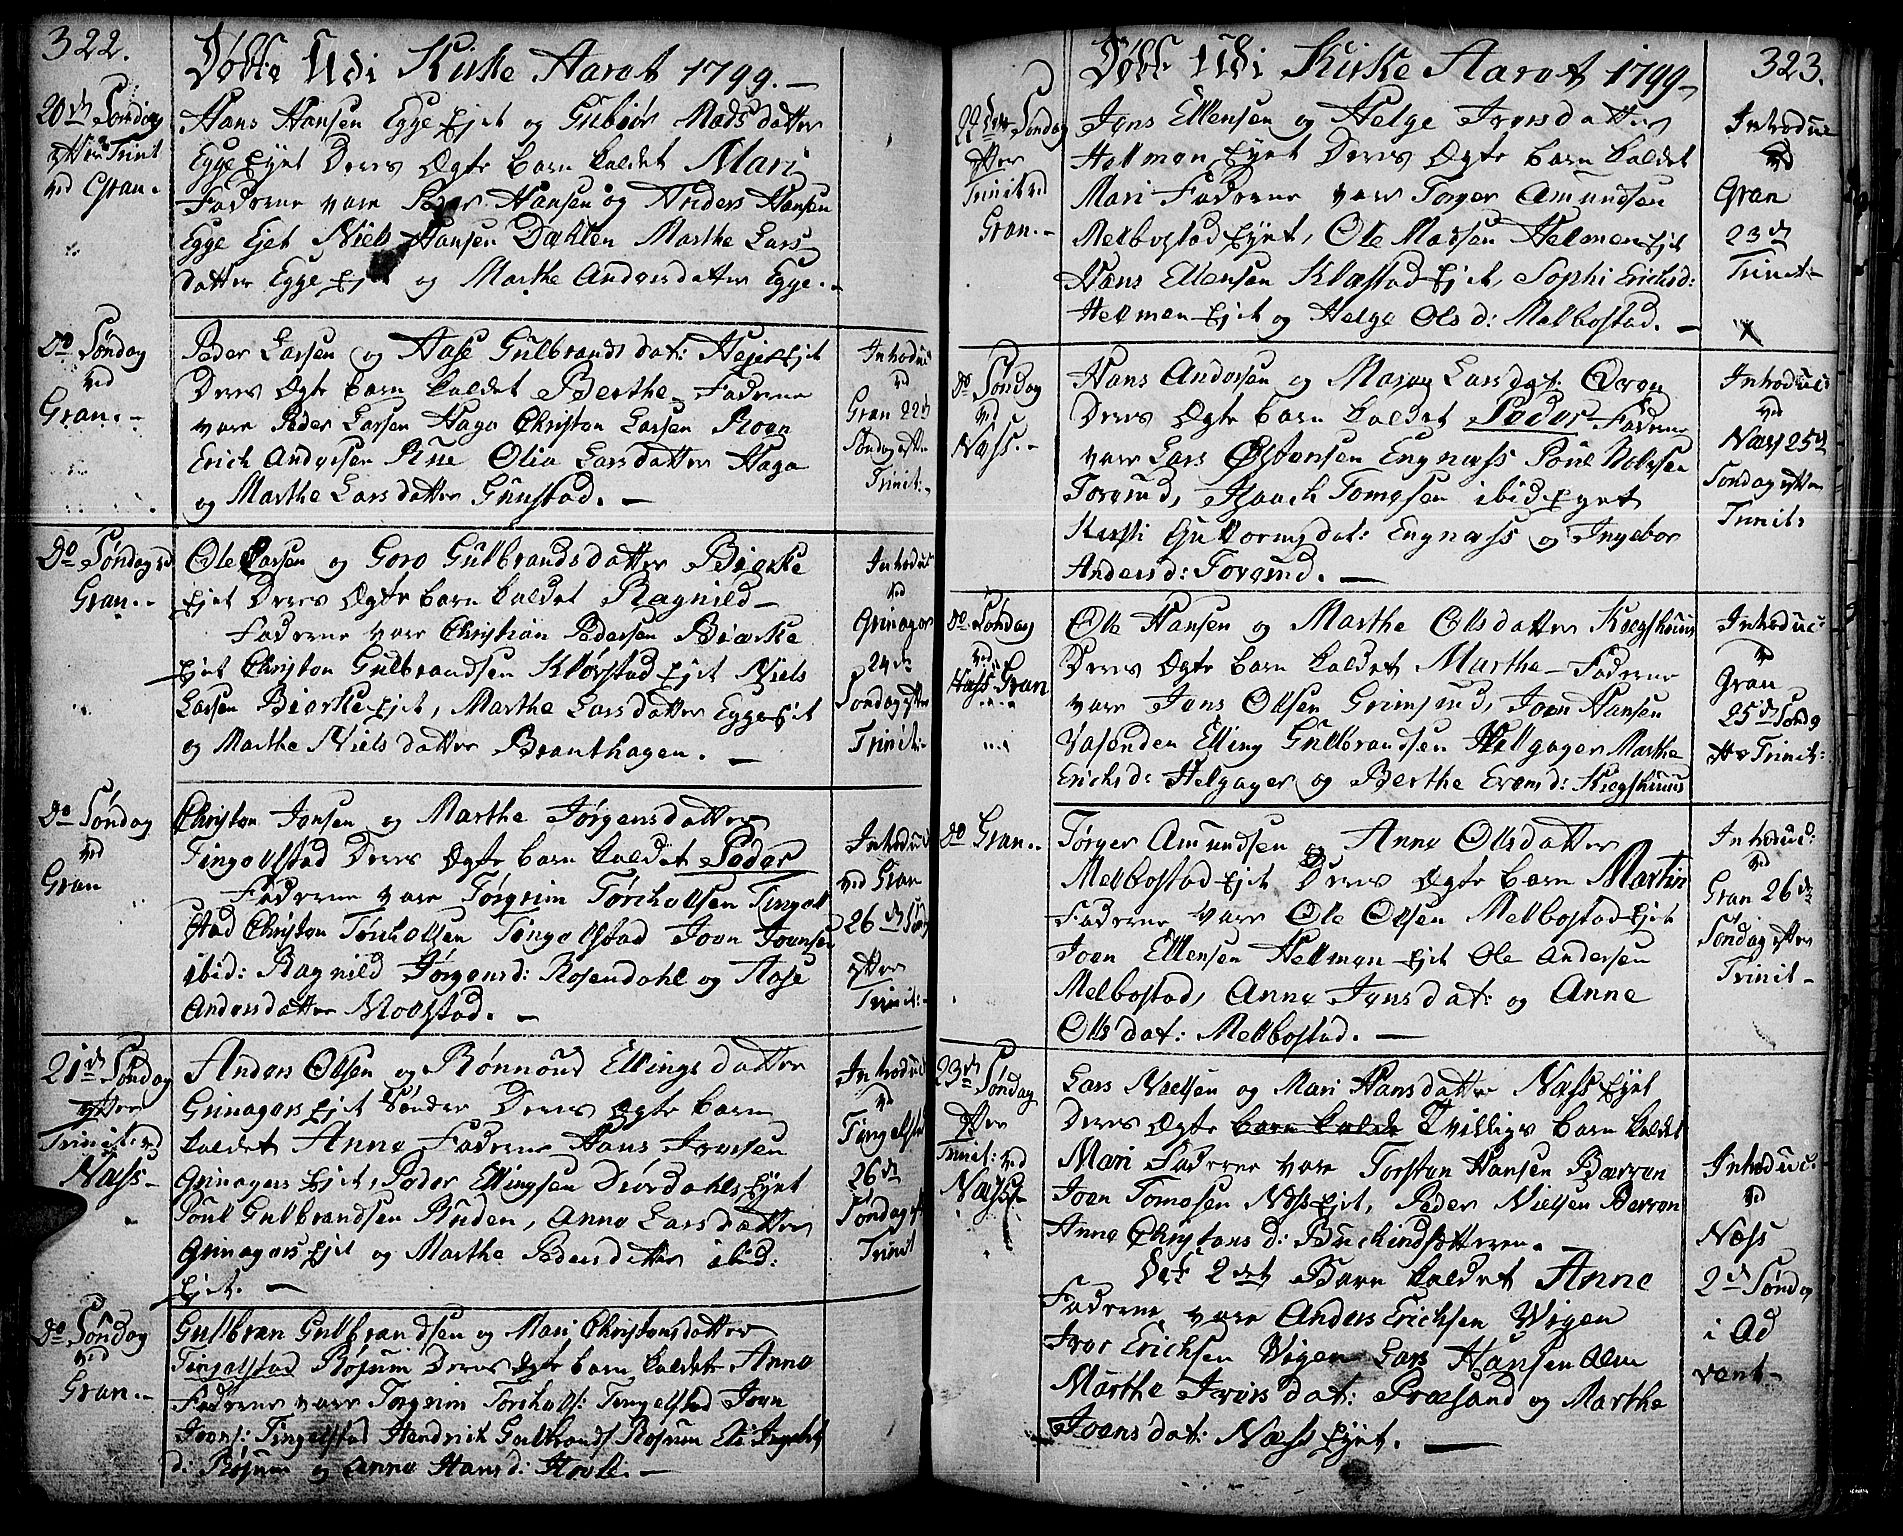 322.
Døbte Udi Kirke Aaret 1799.
20de Søndag
efter Trinit
ved Gran.
Hans Hansen Egge Ejet og Gubiør Madsdatter
Egge Eyet Deres Ægte barn kaldet Mari
Fadderne vare Peder Hansen og Anders Hansen
Egge Ejet Niels Hansen Dæhlen Marthe Lars
datter Egge Ejet og Marthe Andersdatter Egge.
Do Søndag
ved
Gran.
Peder Larsen og Aase Gulbrands dat: Ejet
Deres Ægte barn kaldet Berthe Fadderne
vare Peder Larsen Haga Christen Larsen Roen
Erich Andersen Rue Olia Larsdatter Haga
og Marthe Larsdatter Gunstad.
Introduc
ved
Gran 22de
Søndag efter
Trinit:
Do Søndag ved
Gran.
Ole Larsen og Goro Gulbrandsdatter Bierke
Ejet Deres Ægte barn kaldet Ragnild
Fadderne vare Christian Pedersen Biærke
Ejet Christen Gulbrandsen Klørstad Ejet Niels
Larsen Bierke Ejet, Marthe Larsdatter Egge Ejet
og Marthe Nielsdatter Branthagen.
Introduc
ved
Grinager
24de
Søndag efter
Trinit:
Do Søndag
ved
Gran
Christen Jensen og Marthe Jørgensdatter
Tingelstad Deres Ægte barn kaldet Peder
Fadderne vare Torgrim Torchelsen Tingel
stad Christen Torchelsen Tingelstad Joen Joensen
ibid: Ragnild Jørgensd: Rosendahl og Aase
Andersdatter Molstad.
Introduc
ved Gran
26de Sønd
efter
Trinit:
21de Søndag
efter
Trinit: ved
Næss
Anders Olsen og Rønnoud Ellingsdatter
Grinagers Ejet Søndre Deres Ægte barn
kaldet Anne Fadderne Hans Iversen
Grinagers Ejet, Peder Ellingsen Diørdahls Eyet
Poul Gulbrandsen Ruden, Anne Larsdatter
Grinagers Ejet og Marthe Pedersdatter ibid:
Ejet.
Introduc
ved
Tingelstad
26de
Søndag ef
Trinit
Do Søndag
ved
Gran.
Gulbran Gulbrandsen og Mari Christensdatter
Tingelstad Røsum Deres Ægte barn kaldet Anne
Fadderne vare Torgrim Torchels: Tingelstad Joen
Joens: Tingelstad Hendrich Gulbrands Røsum
d: Røsum og Anne Hansd: Hovle.
323.
Døbte Udi Kirke Aaret 1799
22de Søndag
efter
Trinit ved
Gran.
Jens Ellensen og Helge Iversdatter
Helmen Eyet Deres Ægte barn kaldet
Mari Fadderne vare Torger Amundsen
Melbostad Eyet, Ole Madsen Helmen Ejet
Hans Ellensen Klæstad Ejet, Sophi Erichsd:
Helmen Ejet og Helge Olsd: Melbostad.
Introduc
ved
Gran
23de
Trinit
Do Søndag
ved
Næss.
Hans Andersen og Maren Larsdat:
Deres Ægte barn kaldet Peder Fadderne
vare Lars Østensen Engnæss Poul
Torgund, Isaach Tomesen ibid Eyet
Kirsti Guttormsdat: Engnæss og Ingebor
Andersd: Torgund.
Introduc:
ved
Næss 25de
Søndag efter
Trinit:
Do Søndag
ved
Næss Gran
Ole Hansen og Marthe Olsdatter
Deres Ægte barn kaldet Marthe Fadderne
vare Jens Olsen Grimsrud, Joen Hansen
Vasenden Elling Gulbrandsen Helgager Marthe
Erichsd: Helgager og Berthe Evensd:
Introduc:
ved
Gran
25de Søndg
eftr Trinit:
Do Gran.
Torger Amundsen og Anne Olsdatter
Melbostad Ejet Deres Ægte barn Martin
Fadderne vare Ole Olsen Melbostad Ejet
Joen Ellensen Helmen Ejet Ole Andersen
Melbostad, Anne Jensdat: og Anne
Olsdat: Melbostad.
Introduc:
ved
Gran 26de
Søndag efter
Trinit
23de Søndag
efter
Trinit: ved
Næss
Lars Nielsen og Mari Hansdatter Næss Eyet
Deres Ægte barn kalde Tvillings barn kaldet
Mari Fadderne vare Torsten Hansen Berven
Joen Tomesen Næss Ejet, Peder Nielsen Berven
Anne Christens d:
Det 2det Barn kaldet Anne
Fadderne vare Anders Erichsen Wigen
Iver Erichsen Wigen Lars Hansen Alm
Marthe Iversdat: Præsand og Marthe
Joensdat: Næss Eyet.
Introduc:
ved
Næss
2de Søndag
i Ad
vent